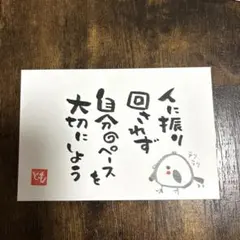 人に振り
回されず
自分のペースを
大切にしよう